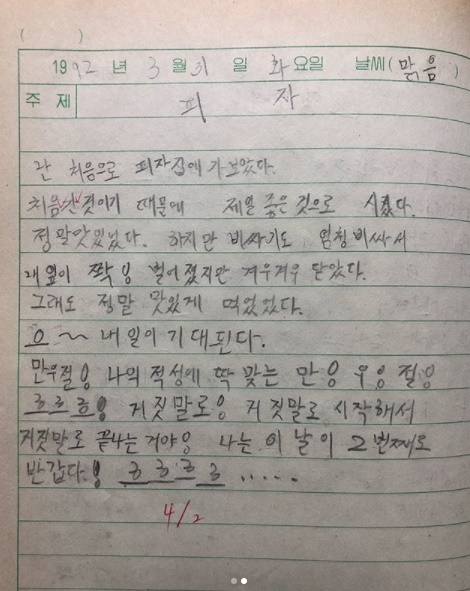 ( )
1992 년 3 월 31 일 화요일 날씨(맑음)
주 제 피 자
난 처음으로 피자집에 가보았다.
처음간것이기 때문에 제일 좋은 것으로 시켰다.
정말맛있었다. 하지만 비싸기도 엄청비싸서
내 입이 짝! 벌어졌지만 겨우겨우 닫았다.
그래도 정말 맛있게 먹었었다.
으~ 내일이 기대된다.
만우절! 나의 적성에 딱 맞는 만! 우! 절!
흐흐흐! 거짓말로! 거짓말로 시작해서
거짓말로 끝나는 거야! 나는 이 날이 2번째로
반갑다! 흐흐흐흐 .....
4/2